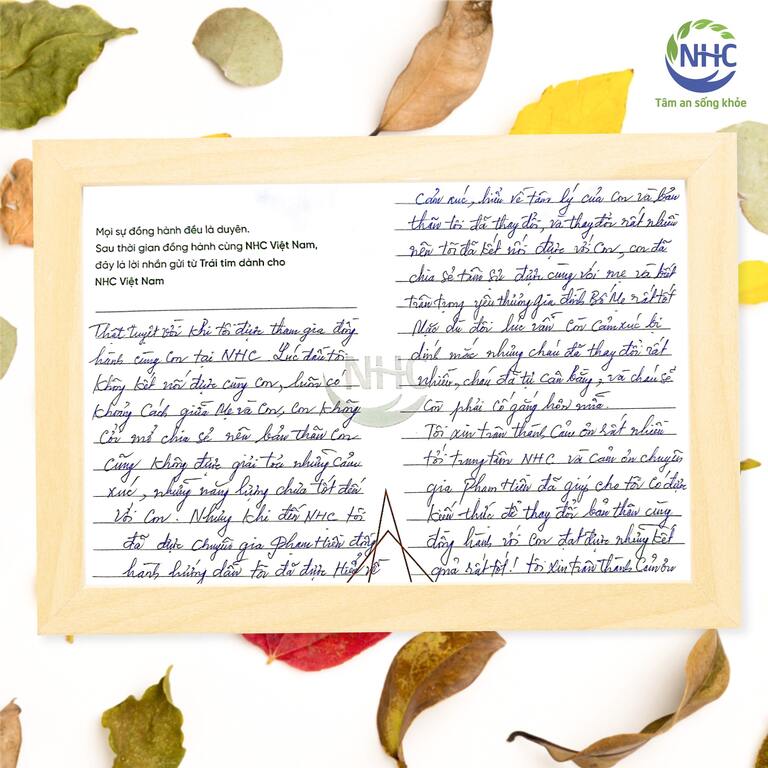 NHC
Tâm an sống khỏe
Mọi sự đồng hành đều là duyên.
Sau thời gian đồng hành cùng NHC Việt Nam,
đây là lời nhắn gửi từ Trái tim dành cho
NHC Việt Nam
Thật tuyệt vời khi tôi được tham gia đồng
hành cùng con tại NHC Lúc đầu tôi
không kết nối được cùng con, luôn có
khoảng cách giữa Mẹ và con, con không
cởi mở chia sẻ nên bản thân con
cũng không được giải toả những cảm
xúc, những năng lượng chưa tốt đến
với con. Nhưng khi đến NHC tôi
đã được chuyên gia Phạm Hiền đồng
hành hướng dẫn tôi đã được Hiểu về
cảm xúc, hiểu về tâm lý của con và bản
thân tôi đã thay đổi, và thay đổi rất nhiều
nên tôi đã kết nối được với con, con đã
chia sẻ tâm sự được cùng với mẹ và biết
trân trọng yêu thương gia đình Bố Mẹ rất tốt
Mặc dù đôi lúc vẫn còn cảm xúc bị
dính mắc nhưng cháu đã thay đổi rất
nhiều, cháu đã tự cân bằng, và cháu sẽ
còn phải cố gắng hơn nữa.
Tôi xin trân thành cảm ơn rất nhiều
tới trung tâm NHC và cảm ơn chuyên
gia Phạm Hiền đã giúp cho tôi có được
kiến thức để thay đổi bản thân cùng
đồng hành với con đạt được những kết
quả rất tốt! tôi xin trân thành cảm ơn
NHC